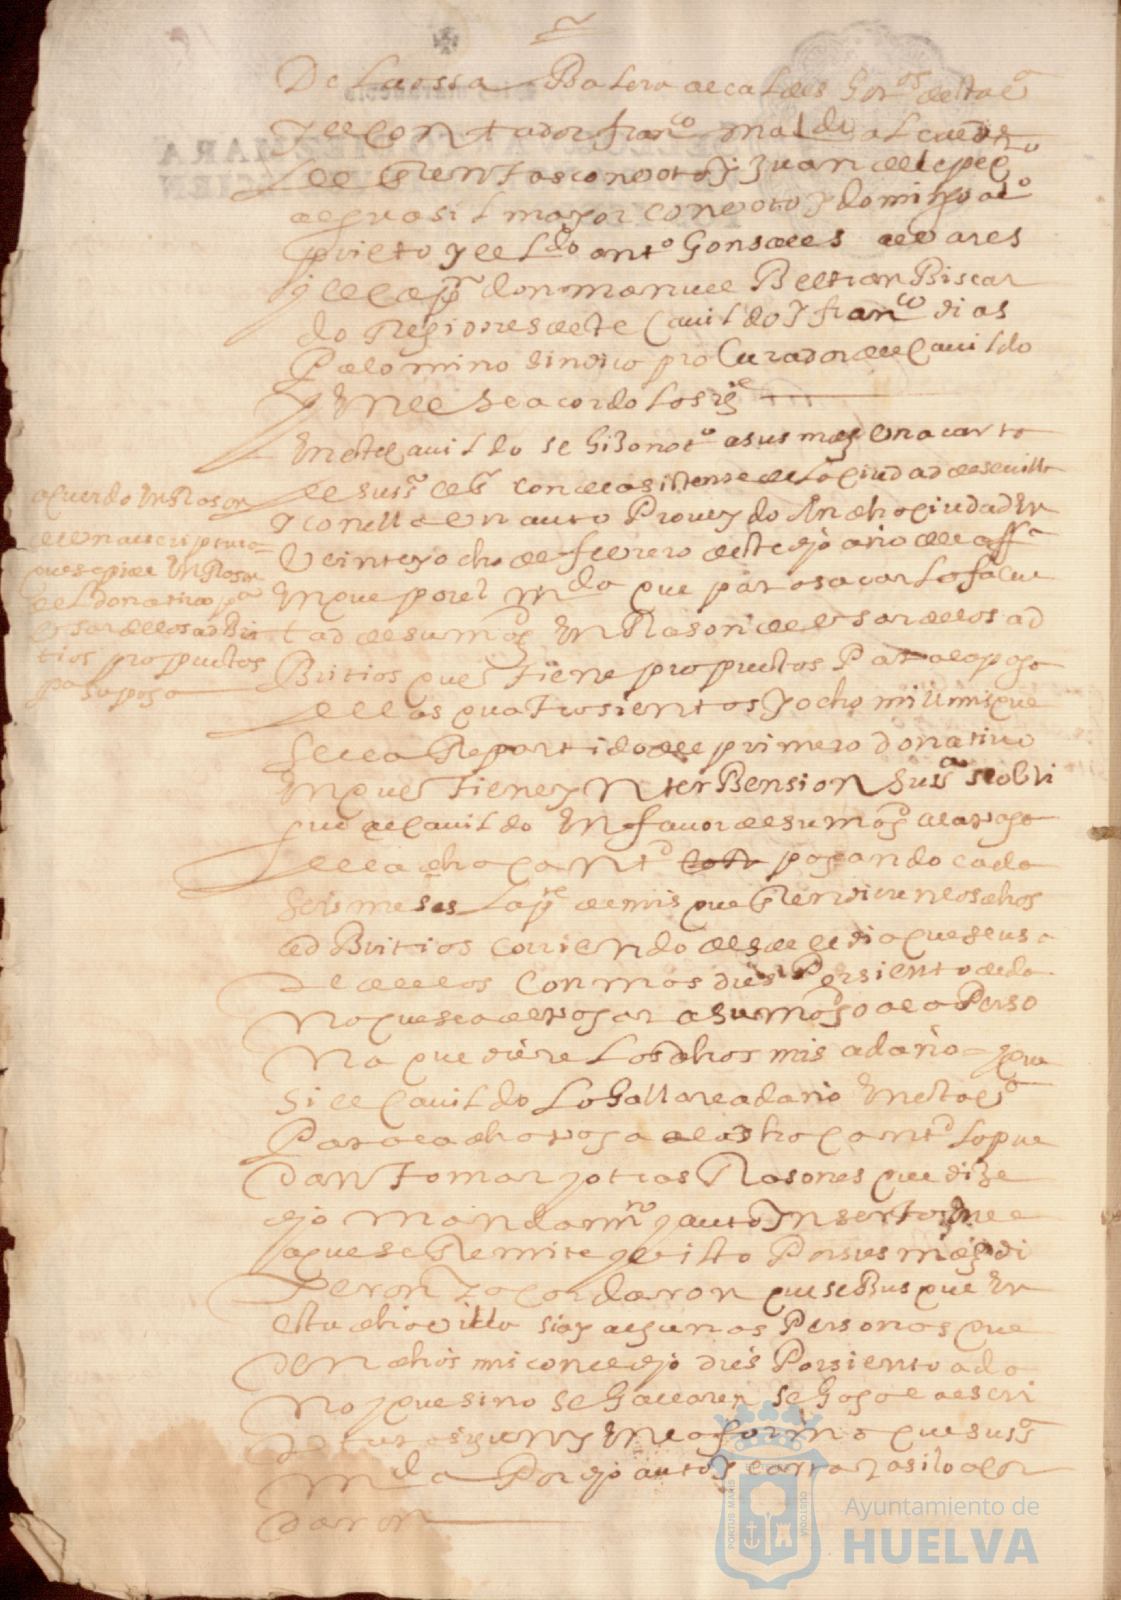 De la ossa Balera alcaldes hor.os desta v.a
y el Contador fran.co maldo al cuede
de Rentas con voto y Juan de lepe
alguasil mayor con voto y domingo al.o
prieto y el l.do ant.o Gonsales alvares
y el cap.n don manuel Beltran Biscar
do Regidores deste Cavildo y fran.co dias
Palomino sindico procurador del cavildo
y en el se acordo lo sig.e
En este cavildo se hiso not.o a sus mds una carta
de su ss.a el s.r conde asistente de la ciudad de sevilla
y con ella un auto Proveydo En dha ciudad En
Veinte y ocho de febrero deste dho año
En que por el m.da que para sacar la facul
tad de su mg.d En Rason de Usar de los ad
Bitrios ques tiene propuestos Para la paga
de las quatrosientos y ocho mill mis que
se le a Repartido del primero donativo
En ques tiene ynterBension su ss.a se obli
gue el cavildo En favor de su mg.d a la paga
de la dha cant.d pagando cada
seis meses la p.te de mis que Rindieren los dhos
adBitrios corriendo desde el dia que se usa
de ellos Con mas dies Por siento de da
ño que sea de pagar a su mg.d o a la Perso
na que diere los dhos mis a daño y que
si el cavildo lo hallare a daño En esta v.a
Para la dha paga de la dha cant.d lo pue
dan tomar y otras Rasones que dize
dho mandam.to y auto ynserto En el
a que se Remite y visto Por sus mds di
xeron y acordaron que se Busque En
esta dha villa si ay algunas Personas que
den dhos mis con el dho dies Por siento de da
ño y que si no se hallaren se haga la escri
tura En la forma que su ss.a
m.da Por dho auto y carta y asi lo acor
daron
acuerdo En Rason
de Una escriptura
que se pide En Rason
del donativo p.a
Usar de los adBi
trios propuestos
p.a su paga
Ayuntamiento de
HUELVA
PORTUS MARIS
CUSTODIA